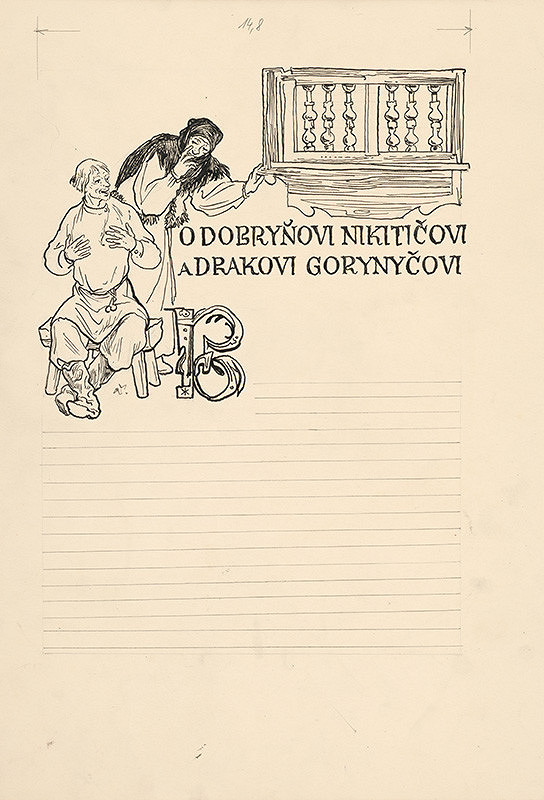 14,8
O DOBRYŇOVI NIKITIČOVI
A DRAKOVI GORYNYČOVI
B